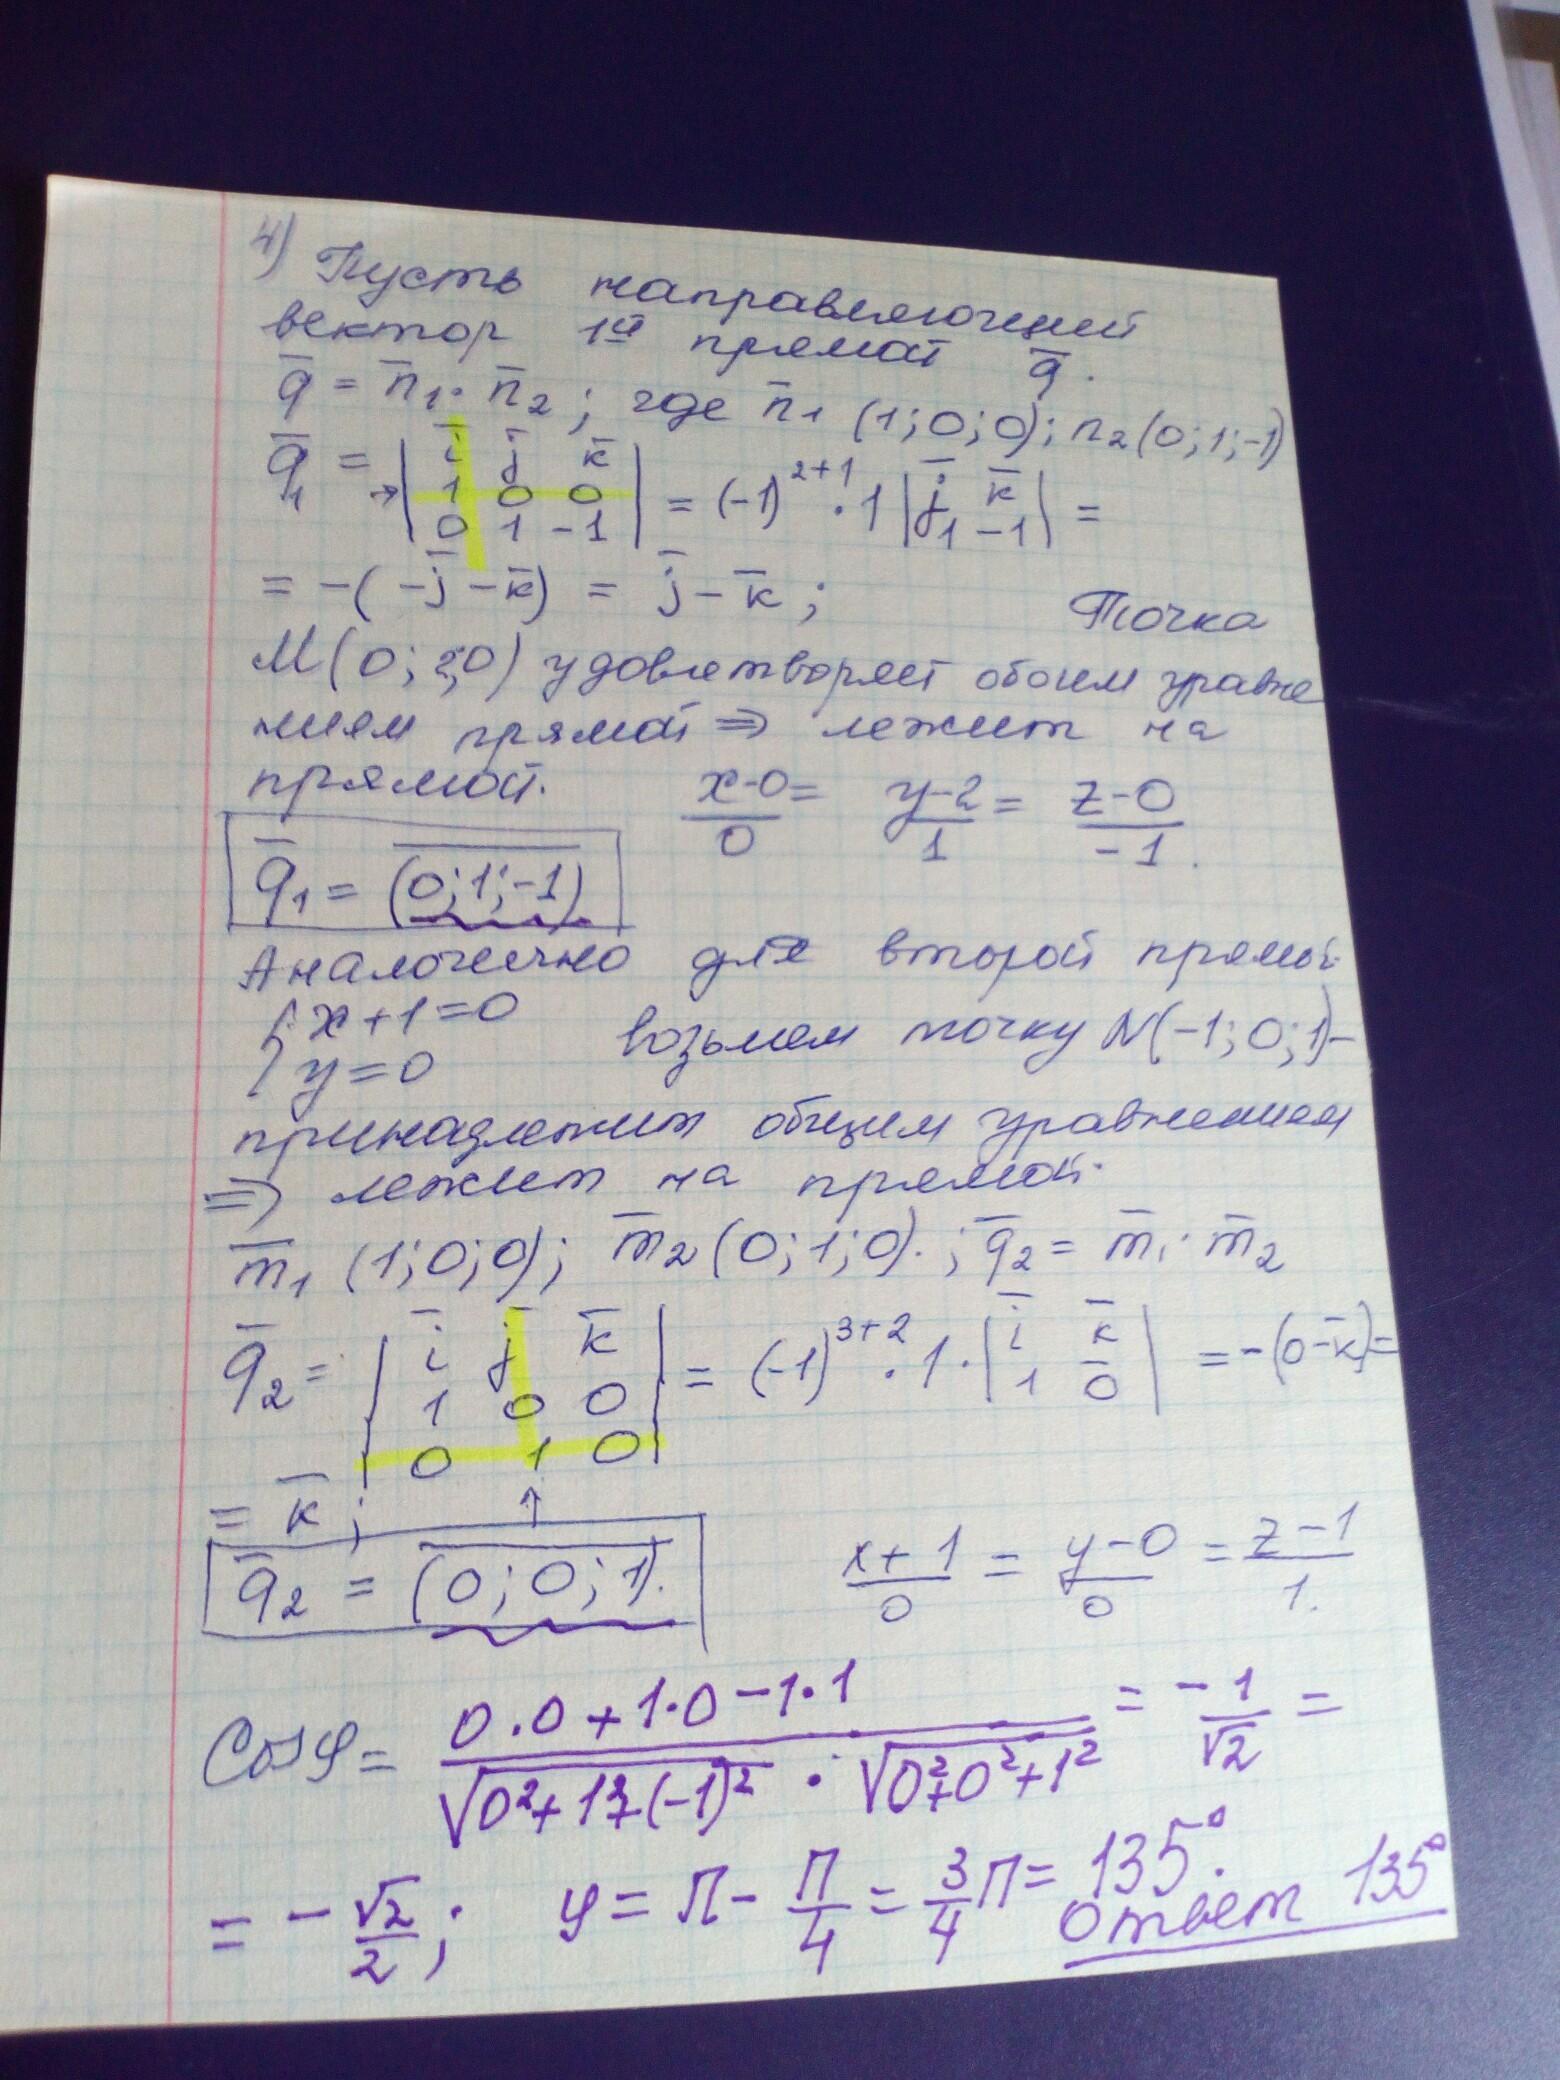 4) Пусть направляющий
вектор 1й прямой q̅.
q̅ = n̅₁ · n̅₂ ; где n̅₁ (1; 0; 0); n₂ (0; 1; -1)
q̅₁ = → | i̅ j̅ k̅ |
| 1 0 0 | = (-1)²⁺¹ · 1 | j̅ k̅ | =
| 0 1 -1 | | 1 -1 |
= -( -j̅ - k̅) = j̅ - k̅ ; Точка
M(0; 2; 0) удовлетворяет обоим уравне
ниям прямой ⇒ лежит на
прямой. (x-0)/0 = (y-2)/1 = (z-0)/-1.
q̅₁ = (0; 1; -1)
Аналогично для второй прямой.
{ x + 1 = 0
{ y = 0 возьмем точку N(-1; 0; 1) -
принадлежит общим уравнениям
⇒ лежит на прямой.
m̅₁ (1; 0; 0); m̅₂ (0; 1; 0). ; q̅₂ = m̅₁ · m̅₂
q̅₂ = | i̅ j̅ k̅ |
| 1 0 0 | = (-1)³⁺² · 1 · | i̅ k̅ | = -(0 - k̅) =
| 0 1 0 | | 1 0 |
= k̅ ; ↑
q̅₂ = (0; 0; 1). (x+1)/0 = (y-0)/0 = (z-1)/1.
Cosφ = (0·0 + 1·0 - 1·1)/(√(0² + 1² + (-1)²) · √(0² + 0² + 1²)) = -1/√2 =
= -√2/2 ; φ = π - π/4 = 3/4 π = 135°.
Ответ 135°